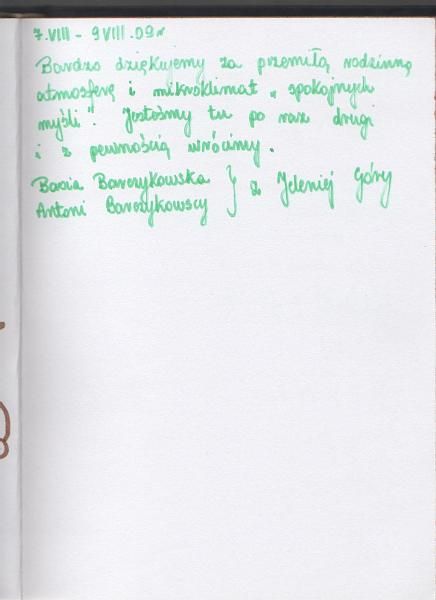 7.VIII - 9VIII.09r
Bardzo dziękujemy za przemiłą rodzinną
atmosferę i mikroklimat „spokojnych
myśli". Jesteśmy tu po raz drugi
i z pewnością wrócimy.
Basia Barczykowska } z Jeleniej Góry
Antoni Barczykowscy